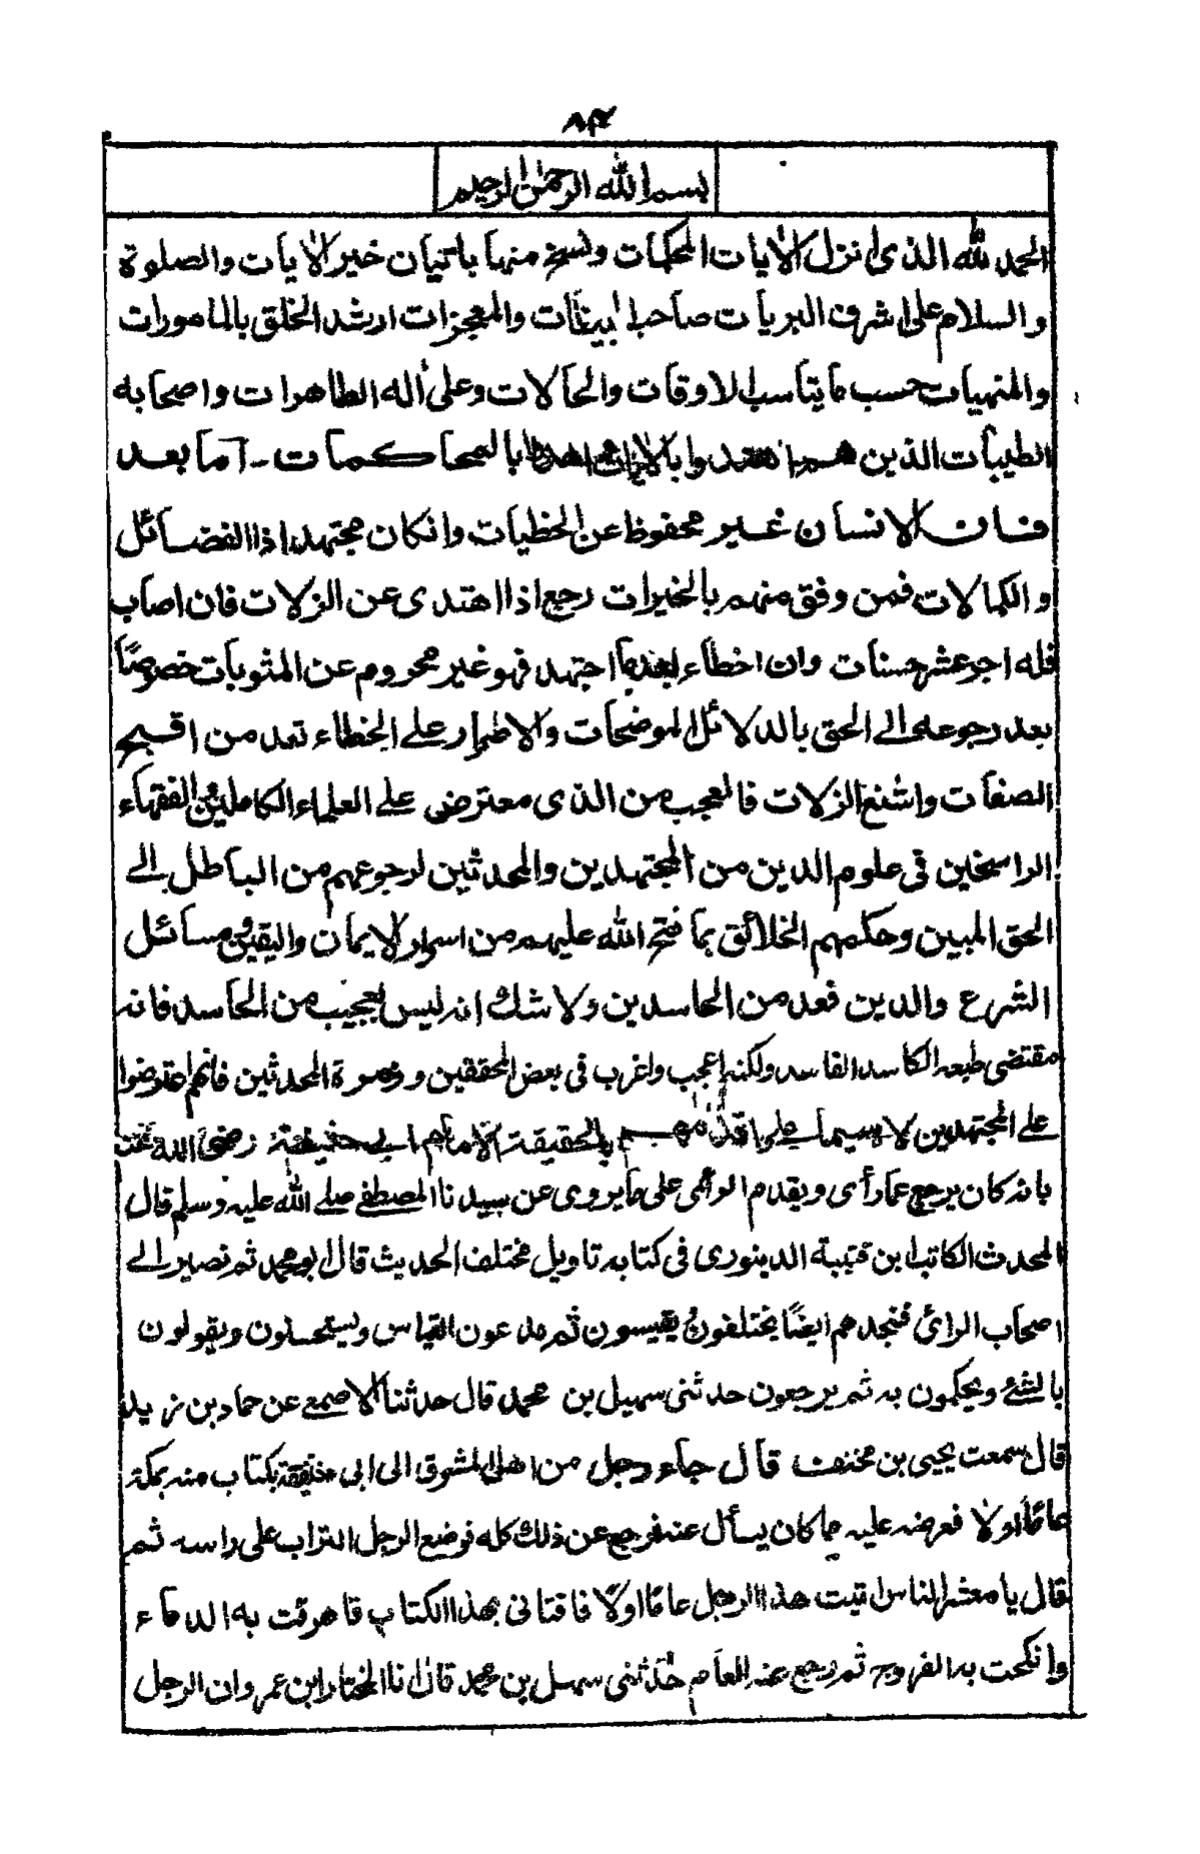 بسم الله الرحمن الرحيم
الحمد لله الذى انزل الأيات المحكمات ونسخ منها باتيان خير الأيات والصلوة
والسلام على اشرف البريات صاحب البينات والمعجزات ارشد الخلق بالمامورات
والمنهيات حسب ما يتاسب الاوقات والحالات وعلى أله الطاهرات واصحابه
الطيبات الذين هم اهتدوا بالمحاكمات - اما بعد
فان الانسان غير محفوظ عن الخطيات وانكان مجتهدا ذا الفضائل
والكمالات فمن وفق منهم بالخيرات رجع اذا اهتدى عن الزلات فان اصاب
فله اجر عشر حسنات وان اخطاء بعد ما اجتهد فهو غير محروم عن المثوبات خصوصًا
بعد رجوعه الى الحق بالدلائل الموضحات والاصرار على الخطاء تعد من اقبح
الصفات واشنع الزلات فالعجب من الذى معترض على العلماء الكاملين الفقهاء
الراسخين فى علوم الدين من المجتهدين والمحدثين لرجوعهم من الباطل الى
الحق المبين وحكمهم الخلائق بما فتح الله عليهم من اسرار الايمان واليقين ومسائل
الشرع والدين فعد من الحاسدين ولا شك انه ليس بعجيب من الحاسد فانه
مقتضى طبعه الكاسد الفاسد ولكنه اعجب واغرب فى بعض المحققين وزمرة المحدثين فانهم اعترضوا
على المجتهدين لا سيما على بالحقيقة الامام ابى حنيفة رضى الله عنه
بانه كان يرجع عما رأى ويقدم الرأى على ما يروى عن سيدنا المصطفى صلے الله عليه وسلم قال
المحدث الكاتب ابن قتيبة الدينورى فى كتابه تاويل مختلف الحديث قال ابو محمد ثم نصير الى
اصحاب الرائ فنجدهم ايضًا يختلفون ويقيسون ثم يدعون القياس ويستحسنون ويقولون
بالشئ ويحكمون به ثم يرجعون حدثنى سهيل بن محمد قال حدثنا الاصمعى عن حماد بن زيد
قال سمعت يحيى بن مخنف قال جاء رجل من اهل المشرق الى ابى حنيفة بكتاب منه بمكة
عامًا اولا فعرضه عليه مما كان يسأل عنه فرجع عن ذلك كله فوضع الرجل التراب على راسه ثم
قال يا معشر الناس اتيت هذا الرجل عامًا اولًا فافتانى بهذا الكتاب فاهرقت به الدماء
وانكحت به الفروج ثم رجع عنه العام حدثنى سهل بن محمد قال انا المختار ابن عمرو ان الرجل